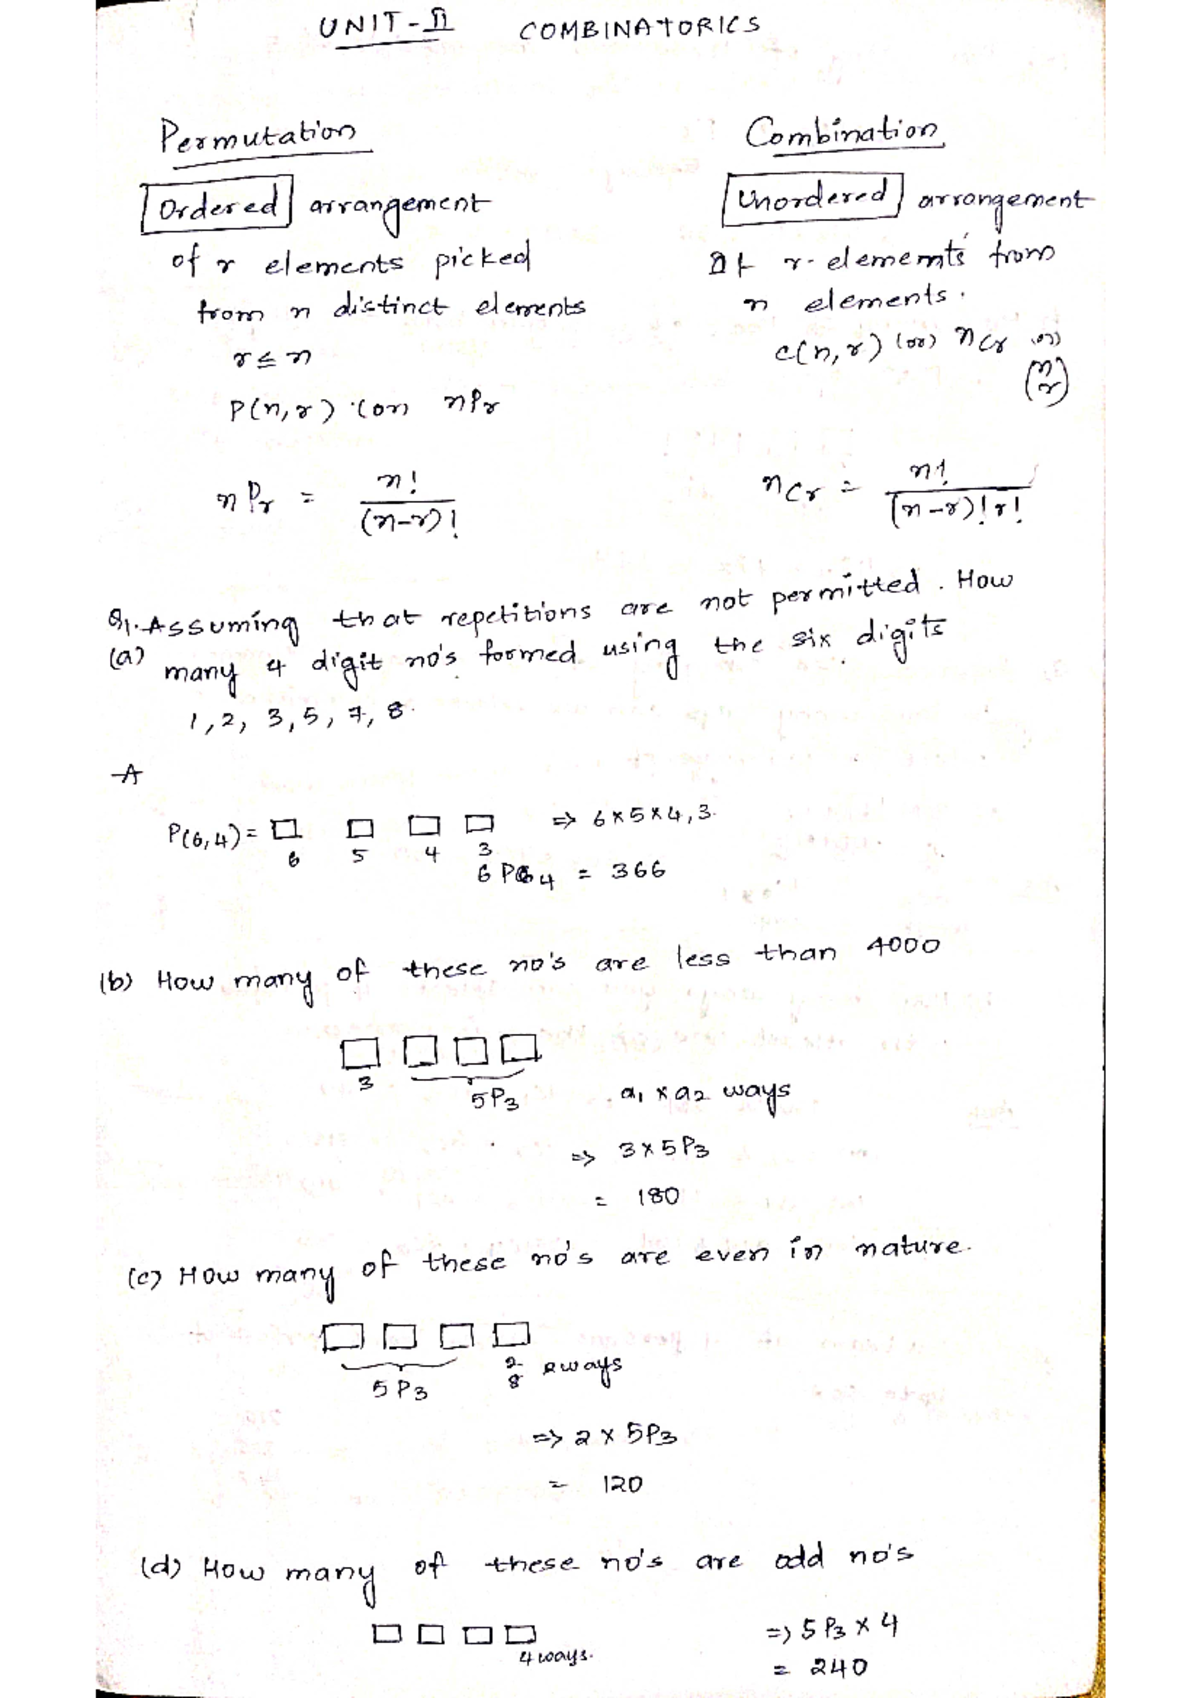 UNIT-II COMBINATORICS
Permutation
Ordered arrangement
of r elements picked
from n distinct elements
r ≤ n
P(n,r) (or) nPr
nPr = n! / (n-r)!
Combination
Unordered arrangement
of r-elements from
n elements.
C(n,r) (or) nCr (or)
(n r)
nCr = n! / (n-r)! r!
Q1. Assuming that repetitions are not permitted. How
(a) many 4 digit no's formed using the six digits
1, 2, 3, 5, 7, 8.
A
P(6,4) = □ □ □ □ => 6×5×4,3.
6 5 4 3
6P4 = 366
(b) How many of these no's are less than 4000
□ □ □ □
3 5P3 a1 × a2 ways
=> 3×5P3
= 180
(c) How many of these no's are even in nature.
□ □ □ □
5P3 2 8 2ways
=> 2 × 5P3
= 120
(d) How many of these no's are odd no's
□ □ □ □ => 5P3 × 4
4 ways.
= 240